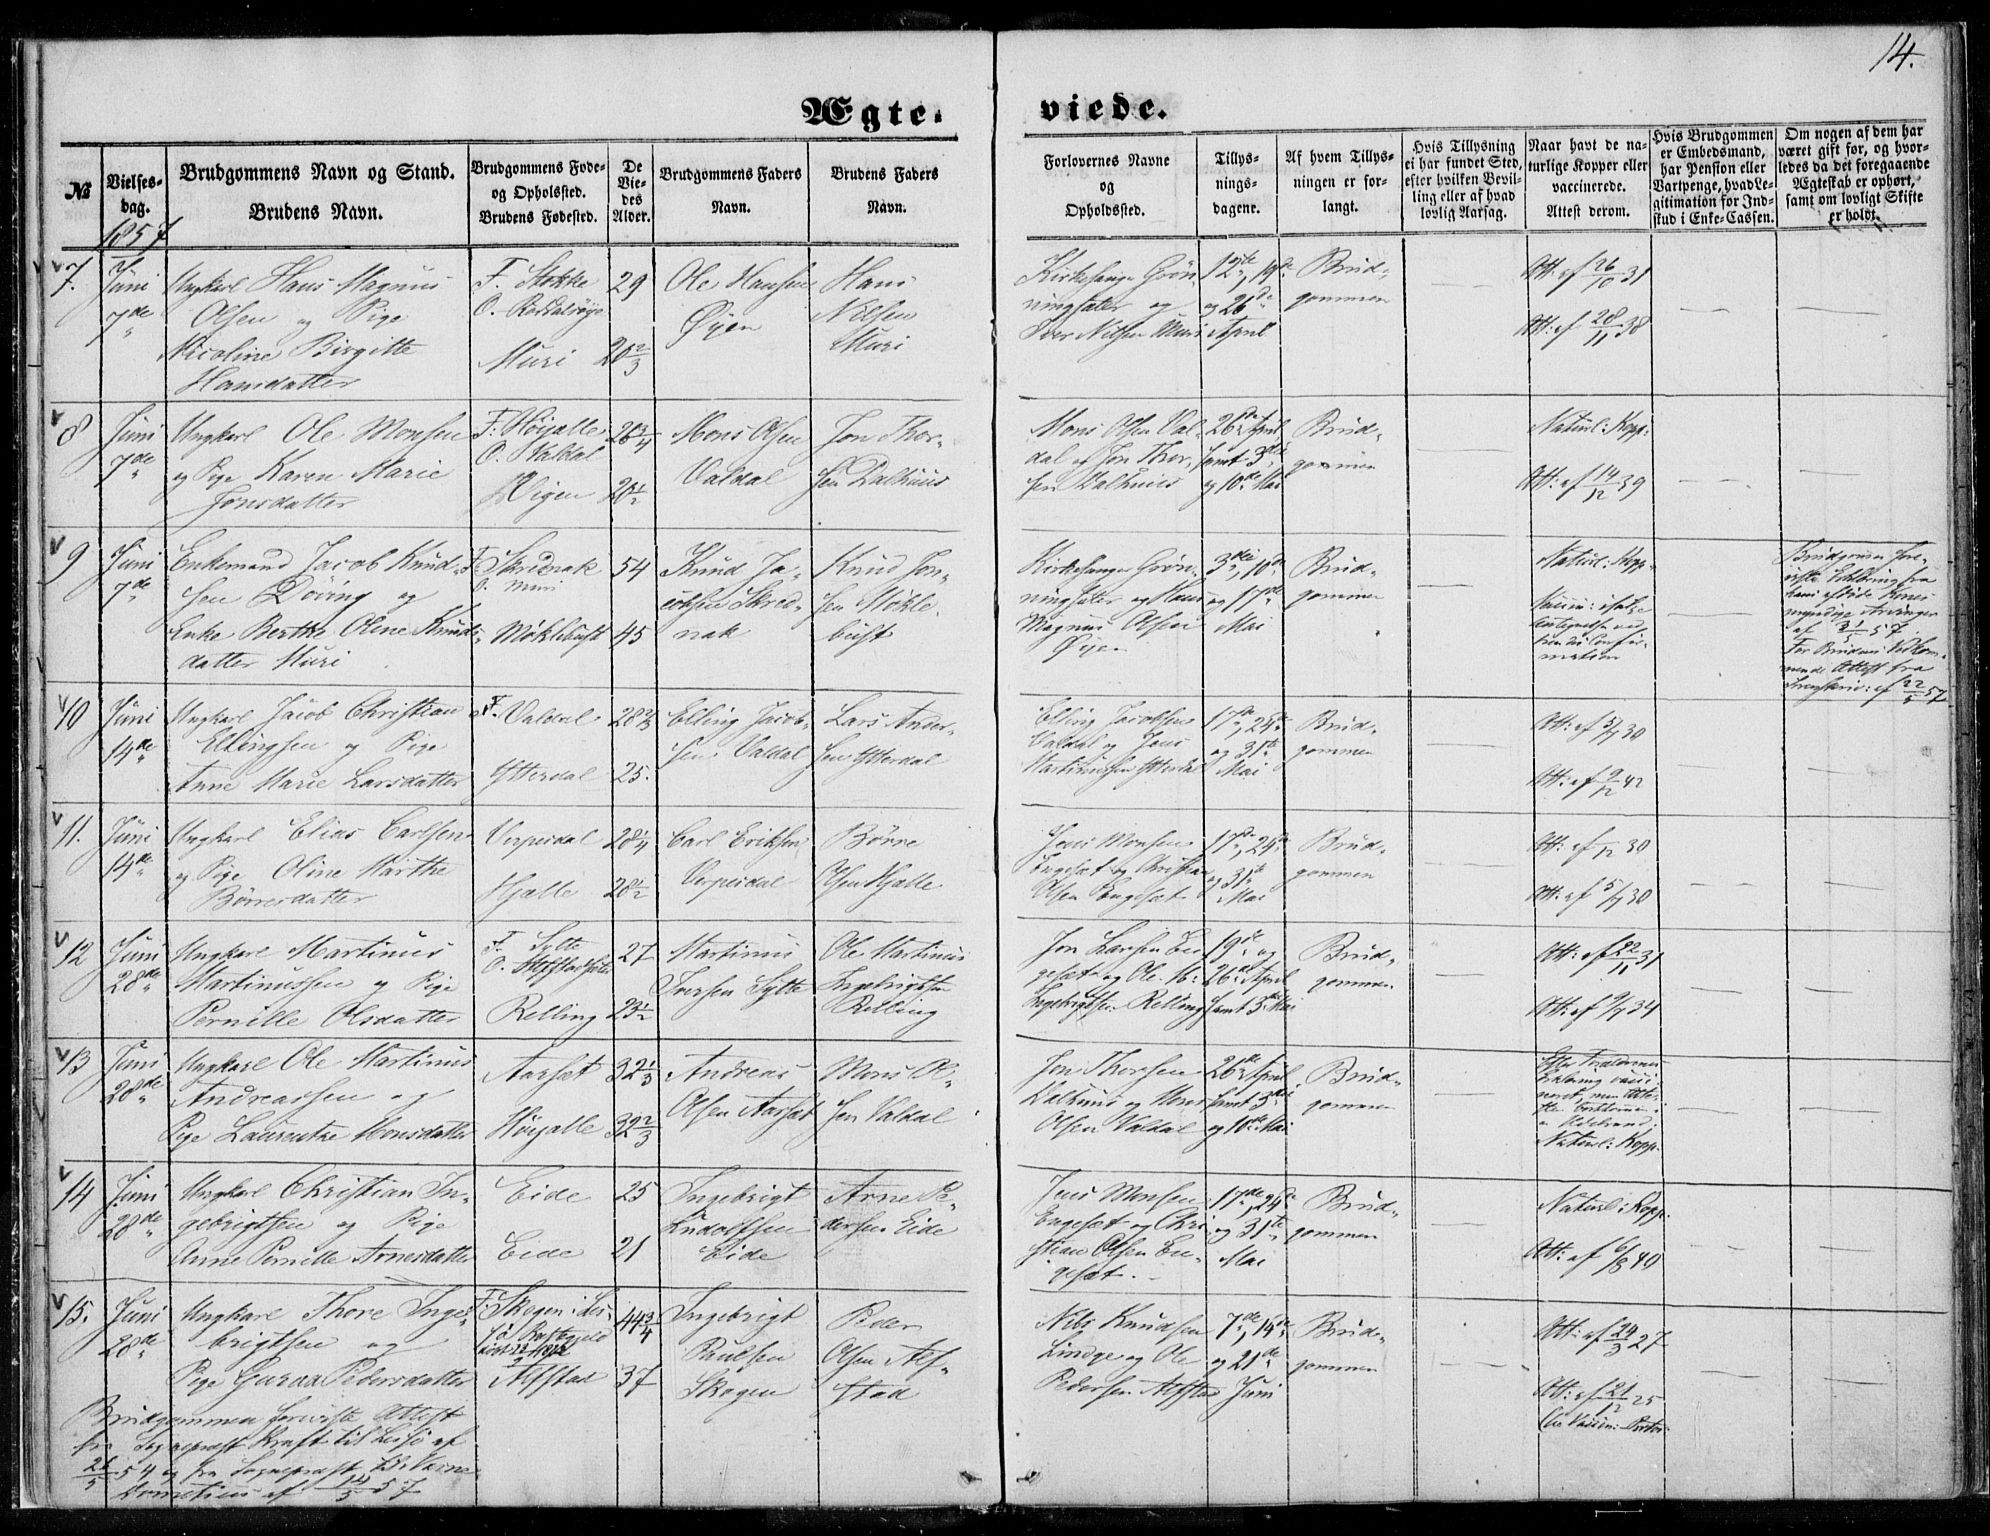 14.
Ægte-
viede.
№
Vielses-
dag.
Brudgommens Navn og Stand.
Brudens Navn.
Brudgommens Føde-
og Opholsted.
Brudens Fødested.
De
Vie-
des
Alder.
Brudgommens Faders
Navn.
Brudens Faders
Navn.
Forlovernes Navne
og
Opholdssted.
Tillys-
nings-
dagene.
Af hvem Tillys-
ningen er for-
langt.
Hvis Tillysning
ei har fundet Sted,
efter hvilken Bevil-
ling eller af hvad
lovlig Aarsag.
Naar havt de na-
turlige Kopper eller
vaccinerede.
Attest derom.
Hvis Brudgommen
er Embedsmand,
har Pension eller
Vartpenge, hvad Le-
gitimation for Ind-
skud i Enke-Cassen.
Om nogen af dem har
været gift før, og hvor-
ledes da det foregaaende
Ægteskab er ophørt,
samt om lovligt Skifte
er holdt.
1857
7.
Juni
7de
Ungkarl Hans Magnus
Olsen og Pige
Nicoline Birgitte
Hansdatter
F. Stokke
O.
Muri
29
20 2/3
Ole Hansen
Øyen
Hans
Nilsen
Muri
Kirkesanger Grøn-
ningsæter og
Iver Nilsen Muri
12te, 19de
og 26de
April
Brud-
gommen
Att: af 26/10 31
Att: af 28/11 38
8
Juni
7de
Ungkarl Ole Monsen
og Pige Karen Marie
Jonsdatter
F. Høijalle
O. Valdal
Vigen
26 3/4
20 1/2
Mons Olsen
Valdal
Jon Thor-
sen Dalhuus
Mons Olsen Val-
dal og Jon Thor-
sen Dalhuus
26de April
samt 3die
og 10de Mai
Brud-
gommen
Naturl: Kopp:
Att: af 14/12 39
9
Juni
7de
Enkemand Jacob Knud-
sen Døving og
Enke Berthe Oline Knuds-
datter Muri
F. Skrednak
O. Muri
Møklebust
54
45
Knud Ja-
cobsen Skred-
nak
Knud Jon-
sen Møkle-
bust
Kirkesanger Grøn-
ningsæter og Hans
Magnus Olsen
Øyen
3die, 10de
og 17de
Mai
Brud-
gommen
Naturl: Kopp-
Brudgommen fore-
viste Erklæring fra
hans afdøde Kones
myndige Arvinger
af 31/5 57.
For Brudens Vedkom-
mende Attest fra
af 22/5 57
10
Juni
14de
Ungkarl Jacob Christian
Ellingsen og Pige
Anne Marie Larsdatter
F. Valdal
Ytterdal
28 2/3
25.
Elling Jacob-
sen Valdal
Lars Ander-
sen Ytterdal
Elling Jacobsen
Valdal og Jens
Martinussen Ytterdal
17de, 24de
og 31te
Mai
Brud-
gommen
Att: af 5/7 30
Att: af 9/12 42
11.
Juni
14de
Ungkarl Elias Carlsen
og Pige Oline Marthe
Børresdatter
Verpesdal
Hjelle
28 1/4
28 1/2
Carl Eriksen
Verpesdal
Børre
Olsen Hjelle
Jens Monsen
Engeset og Christian
Olsen Engeset
17de, 24de
og 31te
Mai
Brud-
gommen
Att: af /12 30
Att: af 5/7 30
12
Juni
28de
Ungkarl Martinus
Martinussen og Pige
Pernille Olsdatter
F. Sylte
Relling
27
23 1/2
Martinus
Iversen Sylte
Ole Martinus
Ingebrigtsen
Relling
Jon Larsen En-
geset og Ole M:
Ingebrigtsen Relling
19de og
26de April
samt 3die Mai
Brud-
gommen
Att: af 22/11 31
Att: af 9/7 34
13
Juni
28de
Ungkarl Ole Martinus
Andreassen og
Pige Laurentze Monsdatter
Aarset
Høijalle
32 1/3
32 2/3
Andreas
Olsen Aarset
Mons Ol-
sen Valdal
Jon Thorsen
Dalhuus og Mons
Olsen Valdal
26de April
samt 3die
og 10de Mai
Brud-
gommen
Efter Forældrenes
Erklæring vacci-
neret, men Atte-
Naturl: Kopp.
14
Juni
28de
Ungkarl Christian In-
gebrigtsen og Pige
Anne Pernille Arnesdatter
Eide
Eide
25
21
Ingebrigt
Rudolfsen
Eide
Arne Pe-
dersen Eide
Jens Monsen
Engeset og Chri-
stian Olsen En-
geset.
17de, 24de
og 31te
Mai
Brud-
gommen
Naturl: Kopp.
Att: af 6/8 40
15.
Juni
28de
Ungkarl Thore Inge-
brigtsen og
Pige Guroa Pedersdatter
F. Skogen i Les-
jø Præstegjeld
Alfstad
44 3/4
37
Ingebrigt
Paulsen
Skogen
Peder
Olsen Alf-
stad
Nils Knudsen
Linge og Ole
Pedersen Alfstad
7de, 14de
og 21de
Juni
Brud-
gommen
Att: af 24/3 27
Att: af 21/12 25
Brudgommen foreviste Attest
fra Sognepræst Kraft til Lessø af
21/5 54 og fra Sognepræst
af 14/5 57